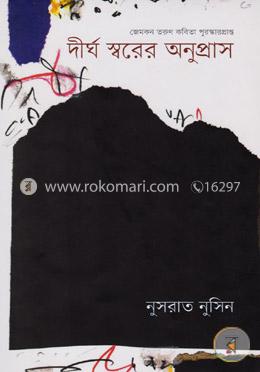 জেমকন তরুণ কবিতা পুরস্কারপ্রাপ্ত
দীর্ঘ স্বরের অনুপ্রাস
www.rokomari.com 16297
নুসরাত নুসিন